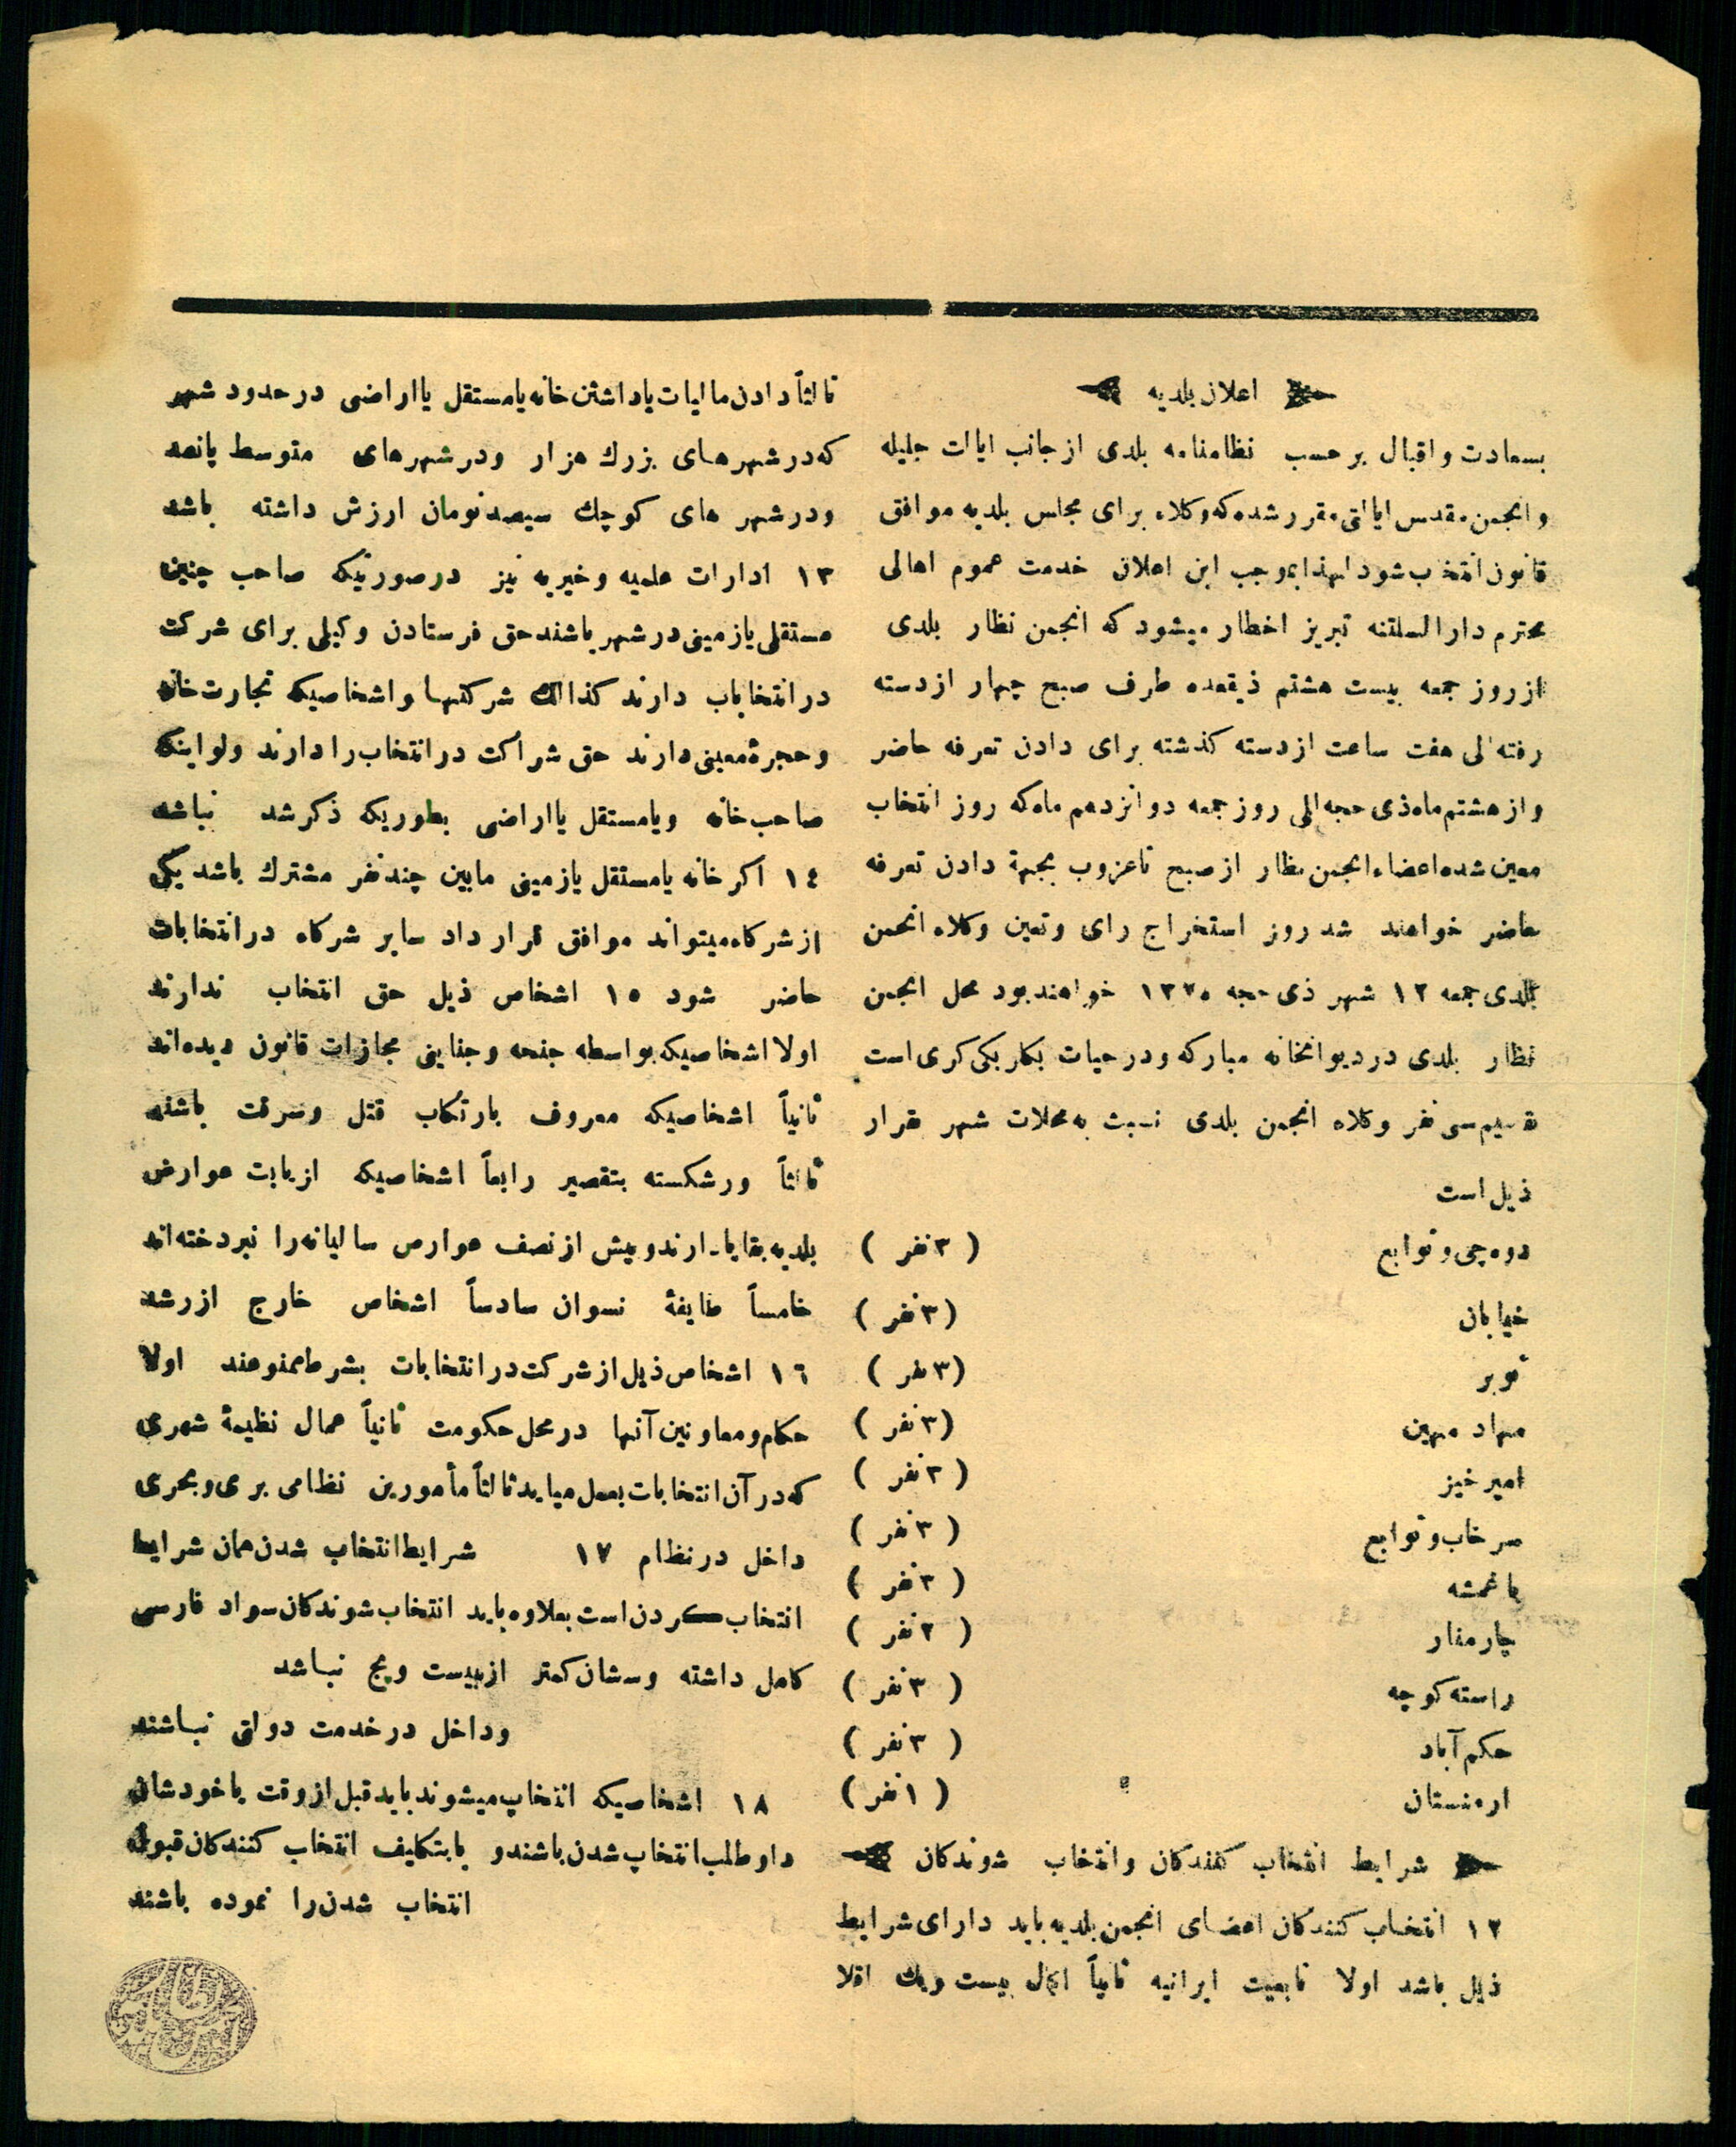 اعلان بلدیه
بسعادت و اقبال برحسب نظامنامه بلدی از جانب ایالت جلیله
و انجمن مقدس ایالتی مقرر شده که وکلاء برای مجلس بلدیه موافق
قانون انتخاب شود لهذا بموجب این اعلان خدمت عموم اهالی
محترم دارالسلتنه تبریز اخطار میشود که انجمن نظار بلدی
از روز جمعه بیست هشتم ذیقعده طرف صبح چهار از دسته
رفته الی هفت ساعت از دسته کذشته برای دادن تعرفه حاضر
و از هشتم ماه ذی حجه الی روز جمعه دوانزدهم ماه که روز انتخاب
معین شده اعضاء انجمن نظار از صبح تاعزوب بجهة دادن تعرفه
حاضر خواهند شد روز استخراج رای وتعین وکلاء انجمن
بلدی جمعه ۱۲ شهر ذی حجه ۱۳۲۵ خواهند بود محل انجمن
نظار بلدی در دیوانخانه مبارکه و در حیات بکلربکی کری است
تقسیم سی نفر وکلاء انجمن بلدی نسبت به محلات شهر بقرار
ذیل است
دوه چی و توابع (۳ نفر)
خیابان (۳ نفر)
نوبر (۳ نفر)
مهاد مهین (۳ نفر)
امیر خیز (۳ نفر)
سرخاب و توابع (۳ نفر)
باغمشه (۳ نفر)
چارمنار (۲ نفر)
راسته کوچه (۳ نفر)
حکم آباد (۳ نفر)
ارمنستان (۱ نفر)
شرایط انتخاب کنندکان وانتخاب شوندکان
۱۲ انتخاب کنندکان اعضای انجمن بلدیه باید دارای شرایط
ذیل باشد اولا تابعیت ایرانیه ثانیاً اکمال بیست ویك اقلا
ثالثاً دادن مالیات یا داشتن خانه یا مستقل یا اراضی در حدود شهر
که در شهرهای بزرك هزار ودر شهرهای متوسط پانصد
ودر شهر های کوچك سیصد تومان ارزش داشته باشد
۱۳ ادارات علمیه و خیریه نیز در صورتیکه صاحب چنین
مستقلی یا زمینی در شهر باشند حق فرستادن وکیلی برای شرکت
در انتخابات دارند کذالك شرکتها و اشخاصیکه تجارت خانه
و حجرهٔ معینی دارند حق شراکت در انتخاب را دارند ولو اینکه
صاحب خانه ویا مستقل یا اراضی بطوریکه ذکر شد نباشند
۱٤ اکر خانه یا مستقل یا زمینی مابین چند نفر مشترك باشد یکی
از شرکاء میتواند موافق قرار داد سایر شرکاء در انتخابات
حاضر شود ۱۵ اشخاص ذیل حق انتخاب ندارند
اولا اشخاصیکه بواسطه جنحه و جنایتی مجازات قانون دیده اند
ثانیاً اشخاصیکه معروف بارتکاب قتل وسرقت باشند
ثالثاً ورشکسته بتقصیر رابعاً اشخاصیکه از بابت عوارض
بلدیه بقایا دارند و بیش از نصف عوارض سالیانه را نپرداخته اند
خامساً طایفهٔ نسوان سادساً اشخاص خارج از رشد
۱٦ اشخاص ذیل از شرکت در انتخابات بشرط ممنوعند اولا
حکام و معاونین آنها در محل حکومت ثانیاً عمال نظیمهٔ شهری
که در آن انتخابات بعمل میاید ثالثاً مأمورین نظامی بری و بحری
داخل در نظام ۱۷ شرایط انتخاب شدن همان شرایط
انتخاب کردن است بعلاوه باید انتخاب شوندکان سواد فارسی
کامل داشته وسشان کمتر از بیست و پنج نباشد
وداخل در خدمت دولتی نباشند
۱۸ اشخاصیکه انتخاب میشوند باید قبل از وقت یا خودشان
داوطلب انتخاب شدن باشند و یا بتکلیف انتخاب کنندکان قبول
انتخاب شدن را نموده باشند